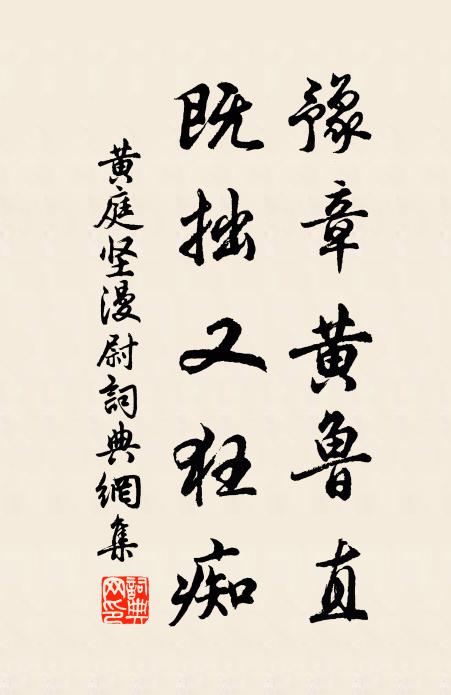 豫章黄鲁直
既拙又狂痴
黄庭坚漫尉詞典網集
詞典网印